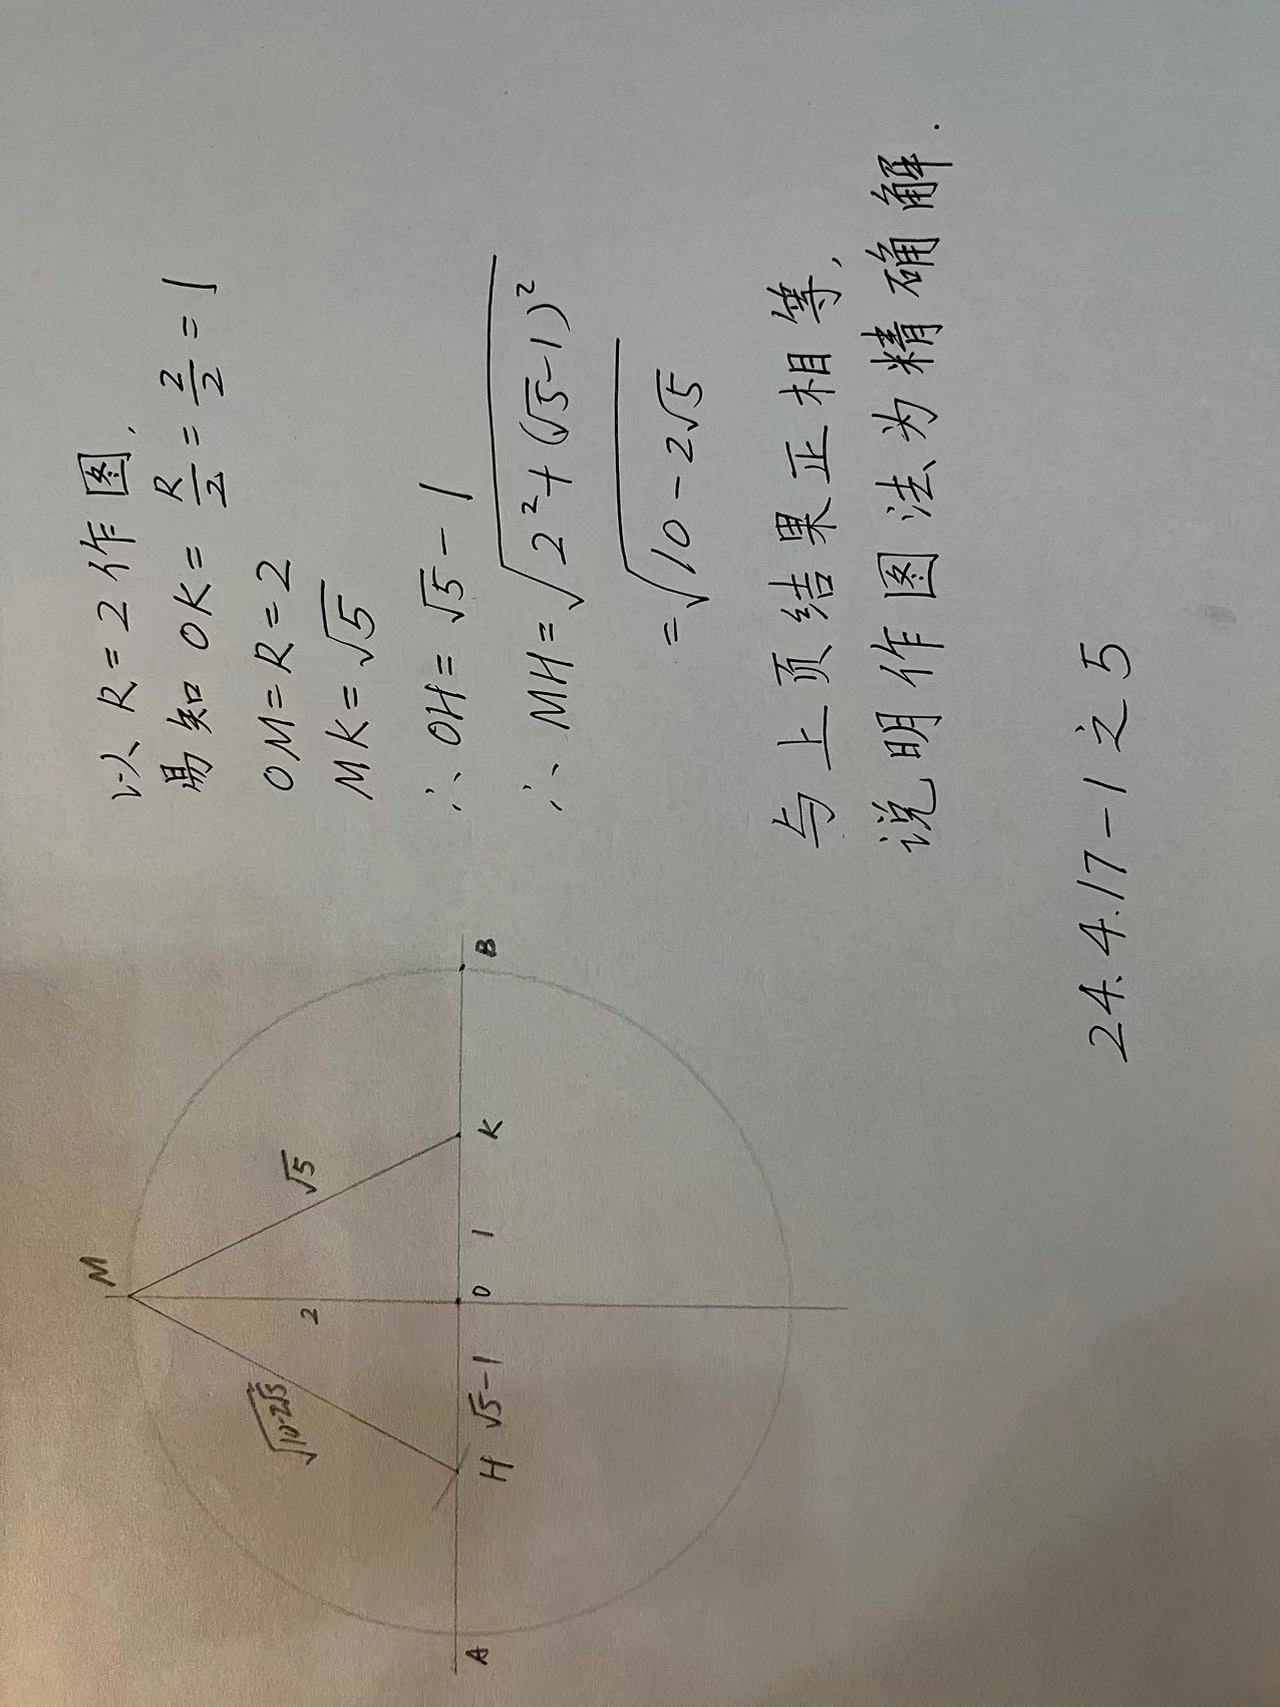 M
√(10-2√5)
2
√5
A
H √5-1 O 1 K
B
以 R=2 作图,
易知 OK= R/2 = 2/2 = 1
OM=R=2
MK=√5
∴ OH= √5-1
∴ MH=√(2²+(√5-1)²)
=√(10-2√5)
与上页结果正相等,
说明作图法为精确解.
24.4.17-1之5